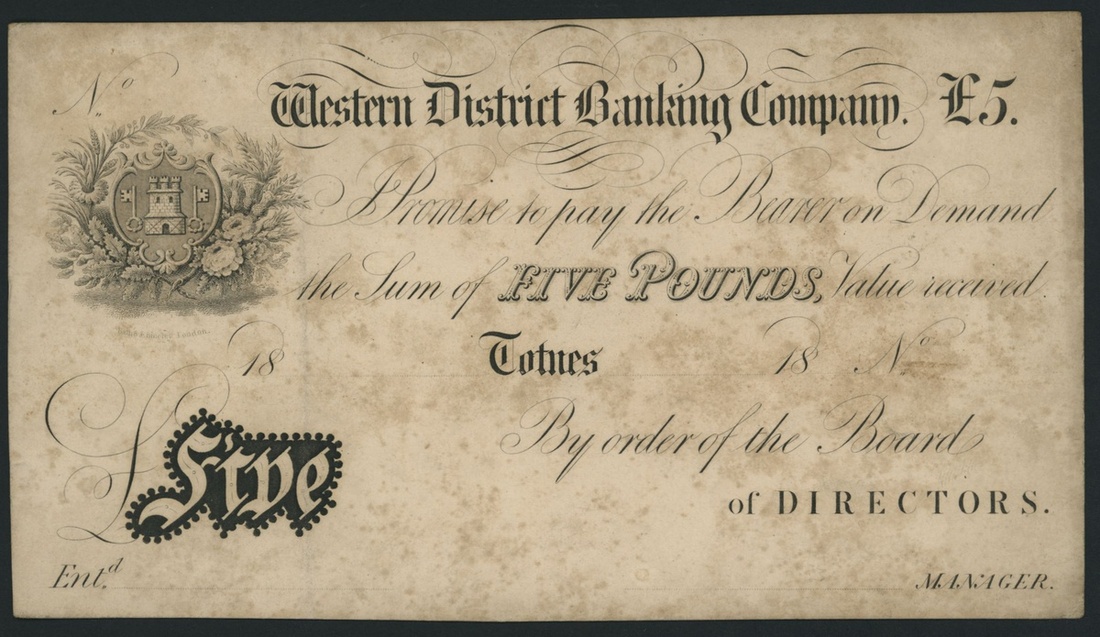 No
Western District Banking Company. £5.
I Promise to pay the Bearer on Demand
the Sum of FIVE POUNDS, Value received.
London.
18 Totnes 18 No
£Five
By order of the Board
of DIRECTORS.
Entd. MANAGER.